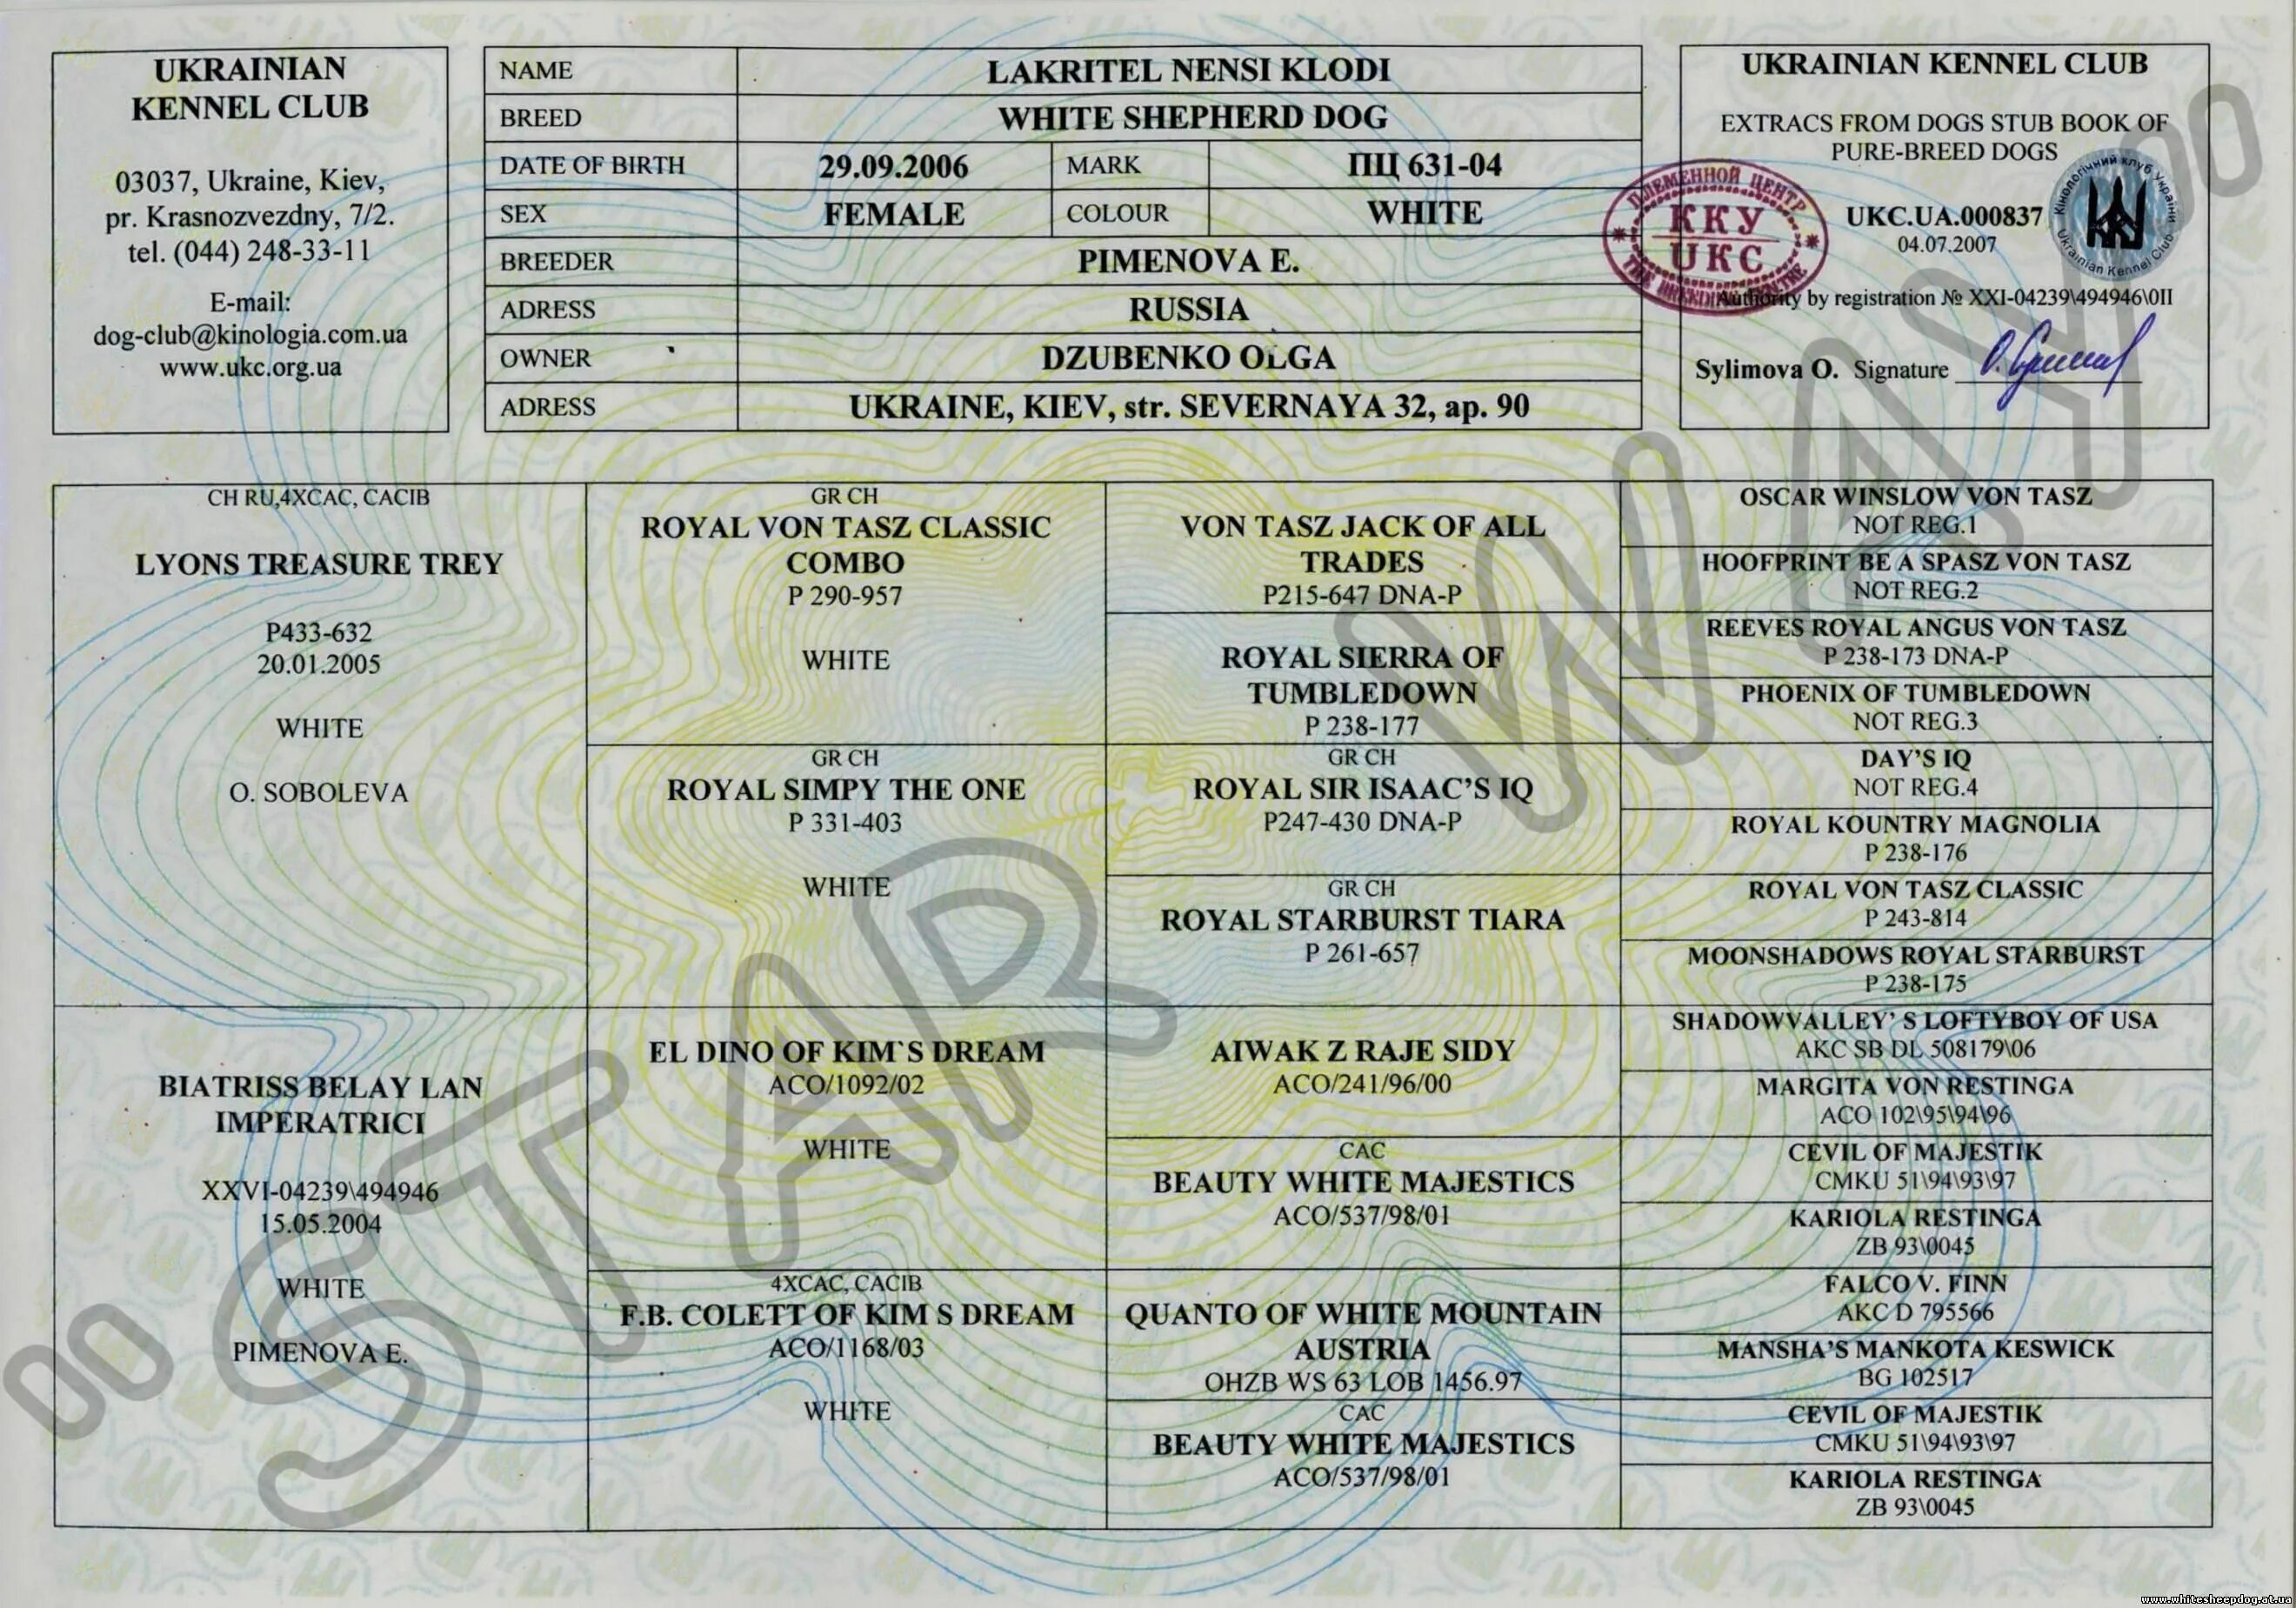 UKRAINIAN
KENNEL CLUB
03037, Ukraine, Kiev,
pr. Krasnozvezdny, 7/2.
tel. (044) 248-33-11
E-mail:
dog-club@kinologia.com.ua
www.ukc.org.ua
NAME LAKRITEL NENSI KLODI
BREED WHITE SHEPHERD DOG
DATE OF BIRTH 29.09.2006 MARK ПЦ 631-04
SEX FEMALE COLOUR WHITE
BREEDER PIMENOVA E.
ADRESS RUSSIA
OWNER DZUBENKO OLGA
ADRESS UKRAINE, KIEV, str. SEVERNAYA 32, ap. 90
UKRAINIAN KENNEL CLUB
EXTRACS FROM DOGS STUB BOOK OF
PURE-BREED DOGS
UKC.UA.000837
04.07.2007
Authority by registration № XXI-04239\494946\0II
Sylimova O. Signature
ПЛЕМЕННОЙ ЦЕНТР
ККУ
UKC
THE BREEDING CENTRE
Кінологічний клуб України
Ukrainian Kennel Club
CH RU,4XCAC, CACIB
LYONS TREASURE TREY
P433-632
20.01.2005
WHITE
O. SOBOLEVA
BIATRISS BELAY LAN
IMPERATRICI
XXVI-04239\494946
15.05.2004
WHITE
PIMENOVA E.
GR CH
ROYAL VON TASZ CLASSIC
COMBO
P 290-957
WHITE
GR CH
ROYAL SIMPY THE ONE
P 331-403
WHITE
EL DINO OF KIM`S DREAM
ACO/1092/02
WHITE
4XCAC, CACIB
F.B. COLETT OF KIM S DREAM
ACO/1168/03
WHITE
VON TASZ JACK OF ALL
TRADES
P215-647 DNA-P
ROYAL SIERRA OF
TUMBLEDOWN
P 238-177
GR CH
ROYAL SIR ISAAC'S IQ
P247-430 DNA-P
GR CH
ROYAL STARBURST TIARA
P 261-657
AIWAK Z RAJE SIDY
ACO/241/96/00
CAC
BEAUTY WHITE MAJESTICS
ACO/537/98/01
QUANTO OF WHITE MOUNTAIN
AUSTRIA
OHZB WS 63 LOB 1456.97
CAC
BEAUTY WHITE MAJESTICS
ACO/537/98/01
OSCAR WINSLOW VON TASZ
NOT REG.1
HOOFPRINT BE A SPASZ VON TASZ
NOT REG.2
REEVES ROYAL ANGUS VON TASZ
P 238-173 DNA-P
PHOENIX OF TUMBLEDOWN
NOT REG.3
DAY'S IQ
NOT REG.4
ROYAL KOUNTRY MAGNOLIA
P 238-176
ROYAL VON TASZ CLASSIC
P 243-814
MOONSHADOWS ROYAL STARBURST
P 238-175
SHADOWVALLEY' S LOFTYBOY OF USA
AKC SB DL 508179\06
MARGITA VON RESTINGA
ACO 102\95\94\96
CEVIL OF MAJESTIK
CMKU 51\94\93\97
KARIOLA RESTINGA
ZB 93\0045
FALCO V. FINN
AKC D 795566
MANSHA'S MANKOTA KESWICK
BG 102517
CEVIL OF MAJESTIK
CMKU 51\94\93\97
KARIOLA RESTINGA
ZB 93\0045
°° STAR WAY °°
www.whitesheepdog.at.ua